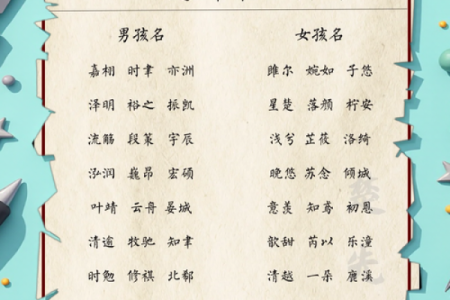 男孩名 女孩名
嘉栩 时聿 亦洲 雎尔 婉如 于悠
泽明 裕之 振凯 星楚 落颜 柠安
流觞 段策 宇辰 浅兮 芷莜 洛绮
泓润 巍昂 宏硕 晚悠 苏念 倾城
叶靖 云舟 晏城 意羡 知鸢 初恩
清逾 牧驰 知聿 歆甜 芮以 乐潼
时勉 修祺 北郗 清越 一朵 唐溪